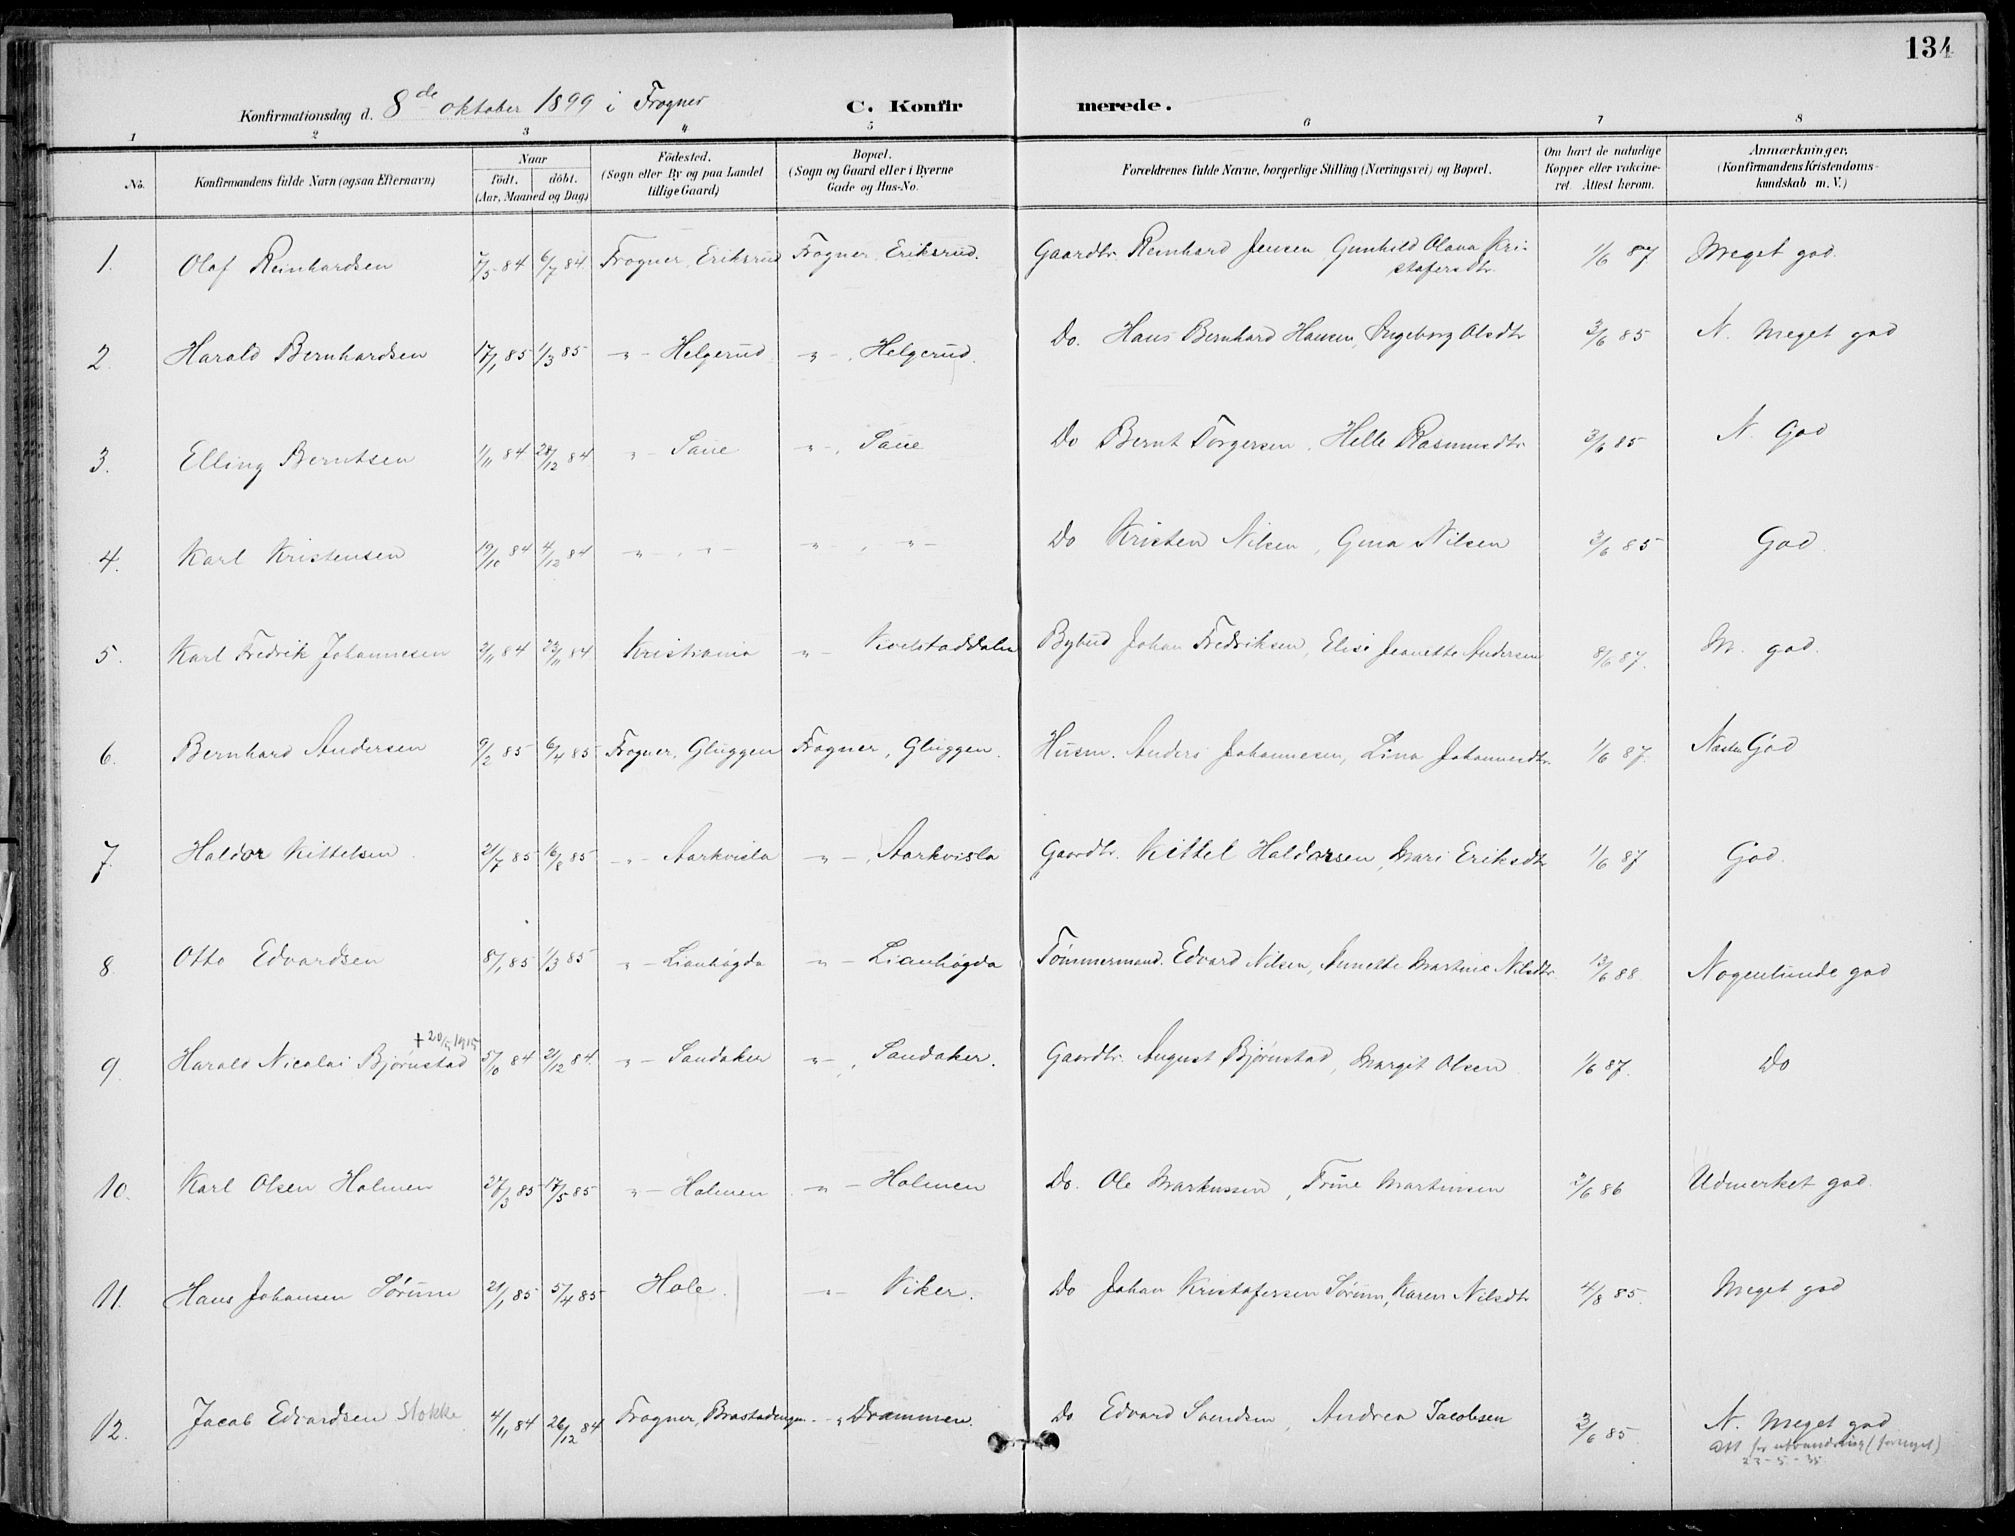 134
Konfirmationsdag d. 8de oktober 1899 i Frogner C. Konfirmerede.
1 2 3 4 5 6 7 8
No. Konfirmandens fulde Navn (ogsaa Efternavn) Naar födt. döbt. (Aar, Maaned og Dag) Födested. (Sogn eller By og paa Landet tillige Gaard) Bopæl. (Sogn og Gaard eller i Byerne Gade og Hus-No. Forældrenes fulde Navne, borgerlige Stilling (Næringsvei) og Bopæl. Om havt de naturlige Kopper eller vakcineret. Attest herom. Anmærkninger, (Konfirmandens Kristendomskundskab m. V.)
1. Olaf Reinhardsen 7/5 84 6/7 84 Frogner, Eriksrud Frogner, Eriksrud. Gaardbr. Reinhard Jensen Gunhild Olava Kristofersdtr. 1/6 87 Meget god.
2. Harald Bernhardsen 17/1 85 1/3 85 " - Helgerud " - , Helgerud. Do. Hans Bernhard Hansen, Ingeborg Olsdtr 3/6 85 N. Meget god
3. Elling Berntsen 1/11 84 28/12 84 " - Saue " - , Saue Do Bernt Torgersen, Helle Rasmusdtr 3/6 85 N. God
4. Karl Kristensen 19/10 84 4/12 84 - " - , - " - - " - , - " - Do Kristen Nilsen, Gina Nilsen 3/6 85 God.
5. Karl Fredrik Johannesen 2/11 84 23/11 84 Kristiania " - Kolstaddalen Bybud Johan Fredriksen, Elise Jeanette Andersen 8/6 87. M. god.
6. Bernhard Andersen 9/2 85 6/4 85 Frogner, Gluggen Frogner, Gluggen. Husm. Anders Johannesen, Lina Johannesdtr. 1/6 87. Næsten God
7. Haldor Kittelsen 21/7 85 16/8 85 - " - Aarkvisla - " - , Aarkvisla Gaardbr. Kittel Haldorsen, Mari Eriksdtr 1/6 87 God.
8. Otto Edvardsen 8/1 85 1/3 85 " - Lianhøgda - " - Lianhøgda Tømmermand. Edvard Nilsen, Annette Martine Nilsdtr. 13/6 88. Nogenlunde god
9. Harald Nicolai Bjørnstad 5/10 84 21/12 84. " - Sandaker - " - , Sandaker. Gaardbr. August Bjørnstad, Margit Olsen 1/6 87. Do
10. Karl Olsen Holmen 27/3 85 17/5 85 " - Holmen - " - Holmen Do. Ole Markussen, Trine Martinsen 3/6 86 Udmerket god.
11. Hans Johansen Sørum 21/1 85 5/4 85 Hole. - " - Viker. Do Johan Kristofersen Sørum, Karen Nilsdtr 4/8 85. Meget god
12. Jacob Edvardsen Stokke 4/11 84 26/12 84 Frogner, - " - , Drammen. Do Edvard Svendsen, Andrea Jacobsen 3/6 85. N. Meget god
att for utvandring (fornyet)
23-5-35